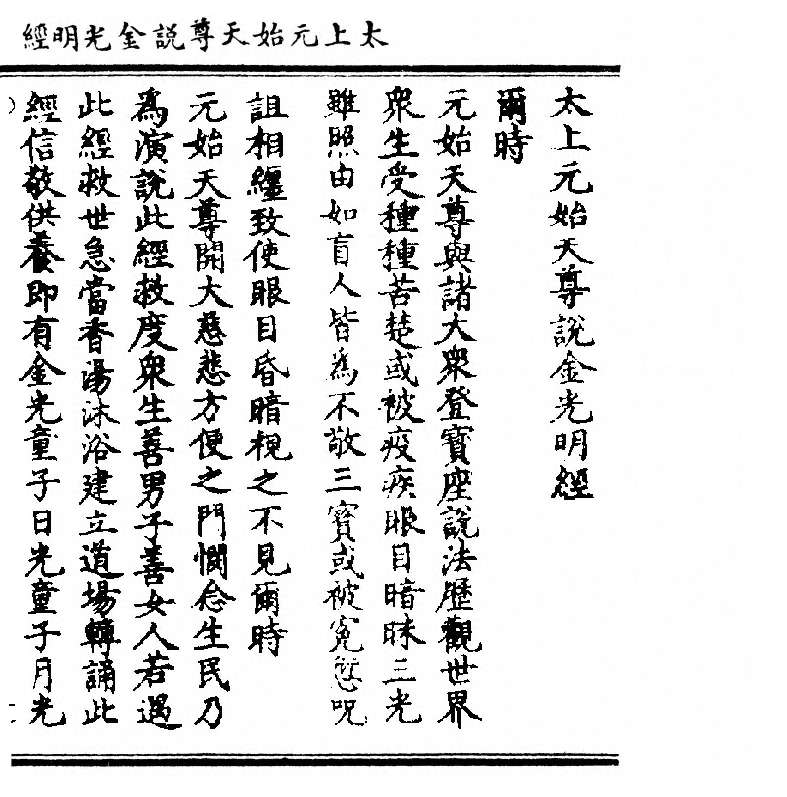 太上元始天尊説金光明經
太上元始天尊說金光明經
爾時
元始天尊與諸大衆登寶座說法歷觀世界
衆生受種種苦楚或被疫疾眼目暗昧三光
雖照由如盲人皆爲不敬三寶或被冤愆呪
詛相纏致使眼目昏暗視之不見爾時
元始天尊開大慈悲方便之門憫念生民乃
爲演說此經救度衆生善男子善女人若遇
此經救世急當香湯沐浴建立道場轉誦此
經信敬供養即有金光童子日光童子月光